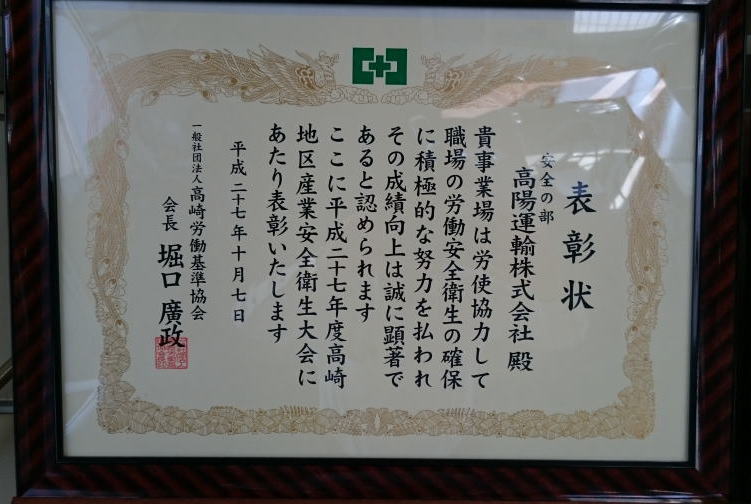 表彰状
安全の部
高陽運輸株式会社 殿
貴事業場は労使協力して
職場の労働安全衛生の確保
に積極的な努力を払われ
その成績向上は誠に顕著で
あると認められます
ここに平成二十七年度高崎
地区産業安全衛生大会に
あたり表彰いたします
平成二十七年十月七日
一般社団法人 高崎労働基準協会
会長 堀口 廣政